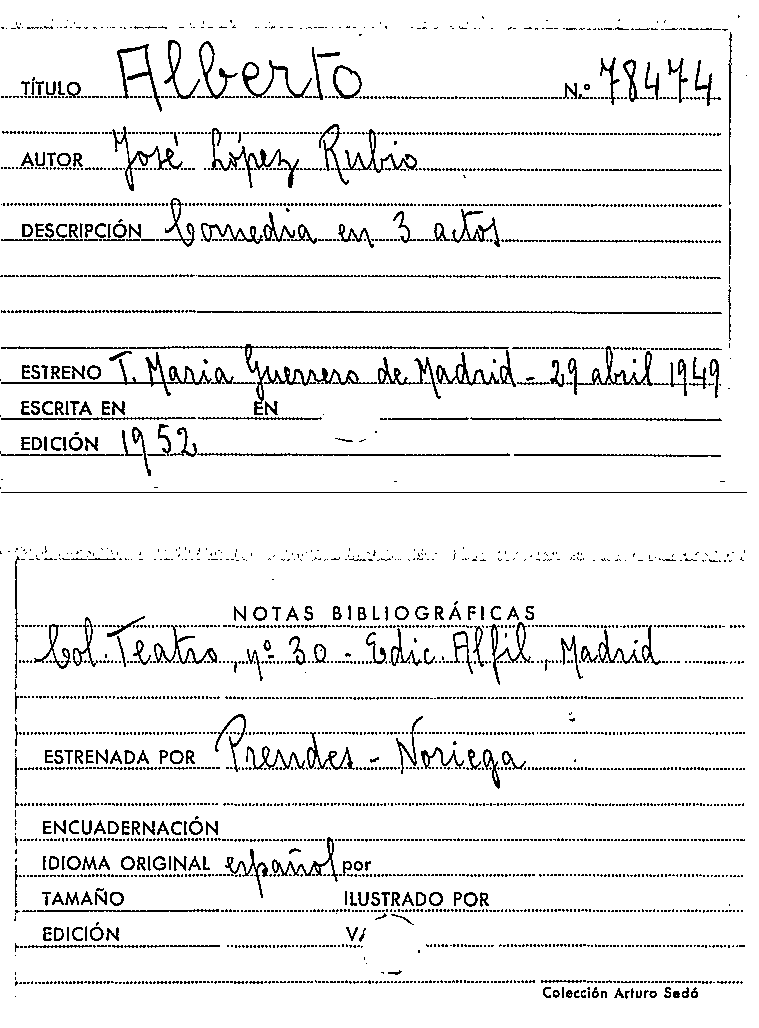 TÍTULO Alberto N.º 78474
AUTOR José López Rubio
DESCRIPCIÓN Comedia en 3 actos
ESTRENO T. Maria Guerrero de Madrid - 29 abril 1949
ESCRITA EN EN
EDICIÓN 1952
NOTAS BIBLIOGRÁFICAS
Col. Teatro, nº 30 - Edic. Alfil, Madrid
ESTRENADA POR Prendes - Noriega
ENCUADERNACIÓN
IDIOMA ORIGINAL español por
TAMAÑO ILUSTRADO POR
EDICIÓN
Colección Arturo Sedó